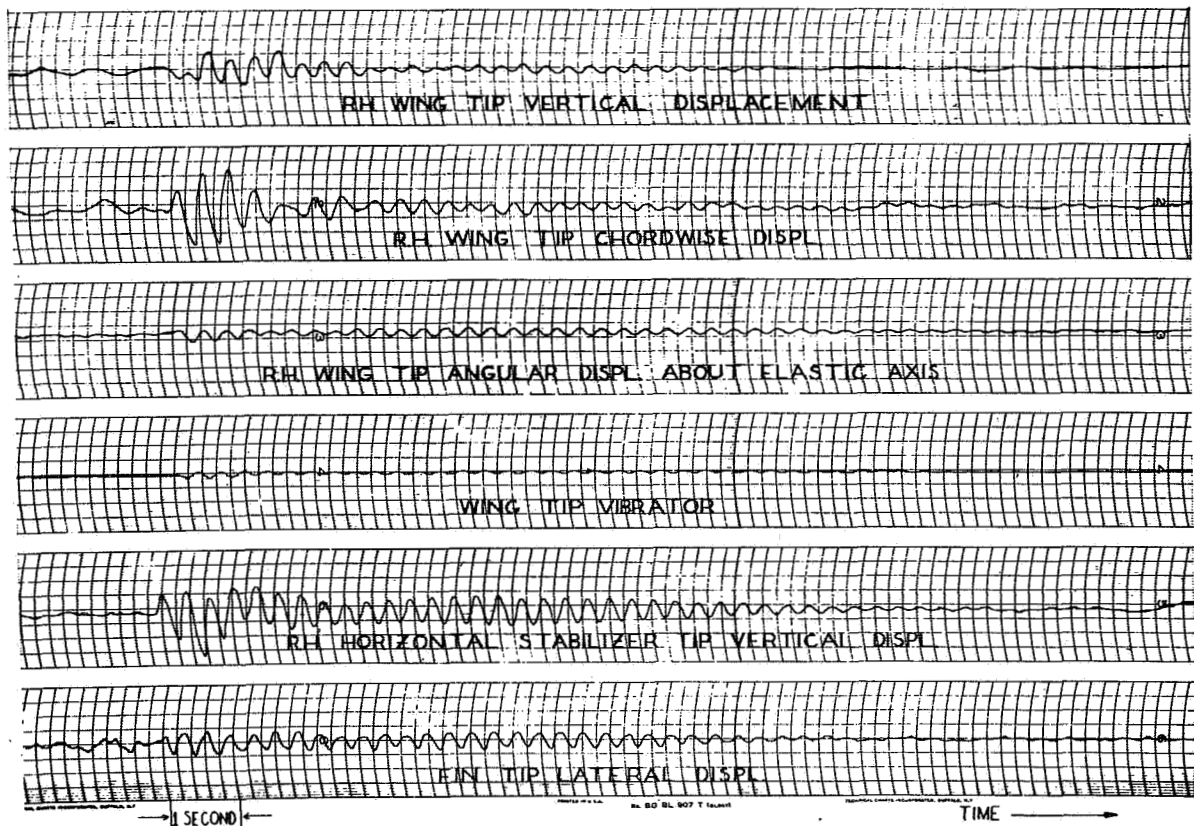 RH WING TIP VERTICAL DISPLACEMENT
2
R.H. WING TIP CHORDWISE DISPL
3
3
R.H. WING TIP ANGULAR DISPL. ABOUT ELASTIC AXIS
4
4
WING TIP VIBRATOR
RH HORIZONTAL STABILIZER TIP VERTICAL DISPL
6
FIN TIP LATERAL DISPL
PRINTED IN U.S.A.
TECHNICAL CHARTS INCORPORATED, BUFFALO, N.Y.
1 SECOND
TIME